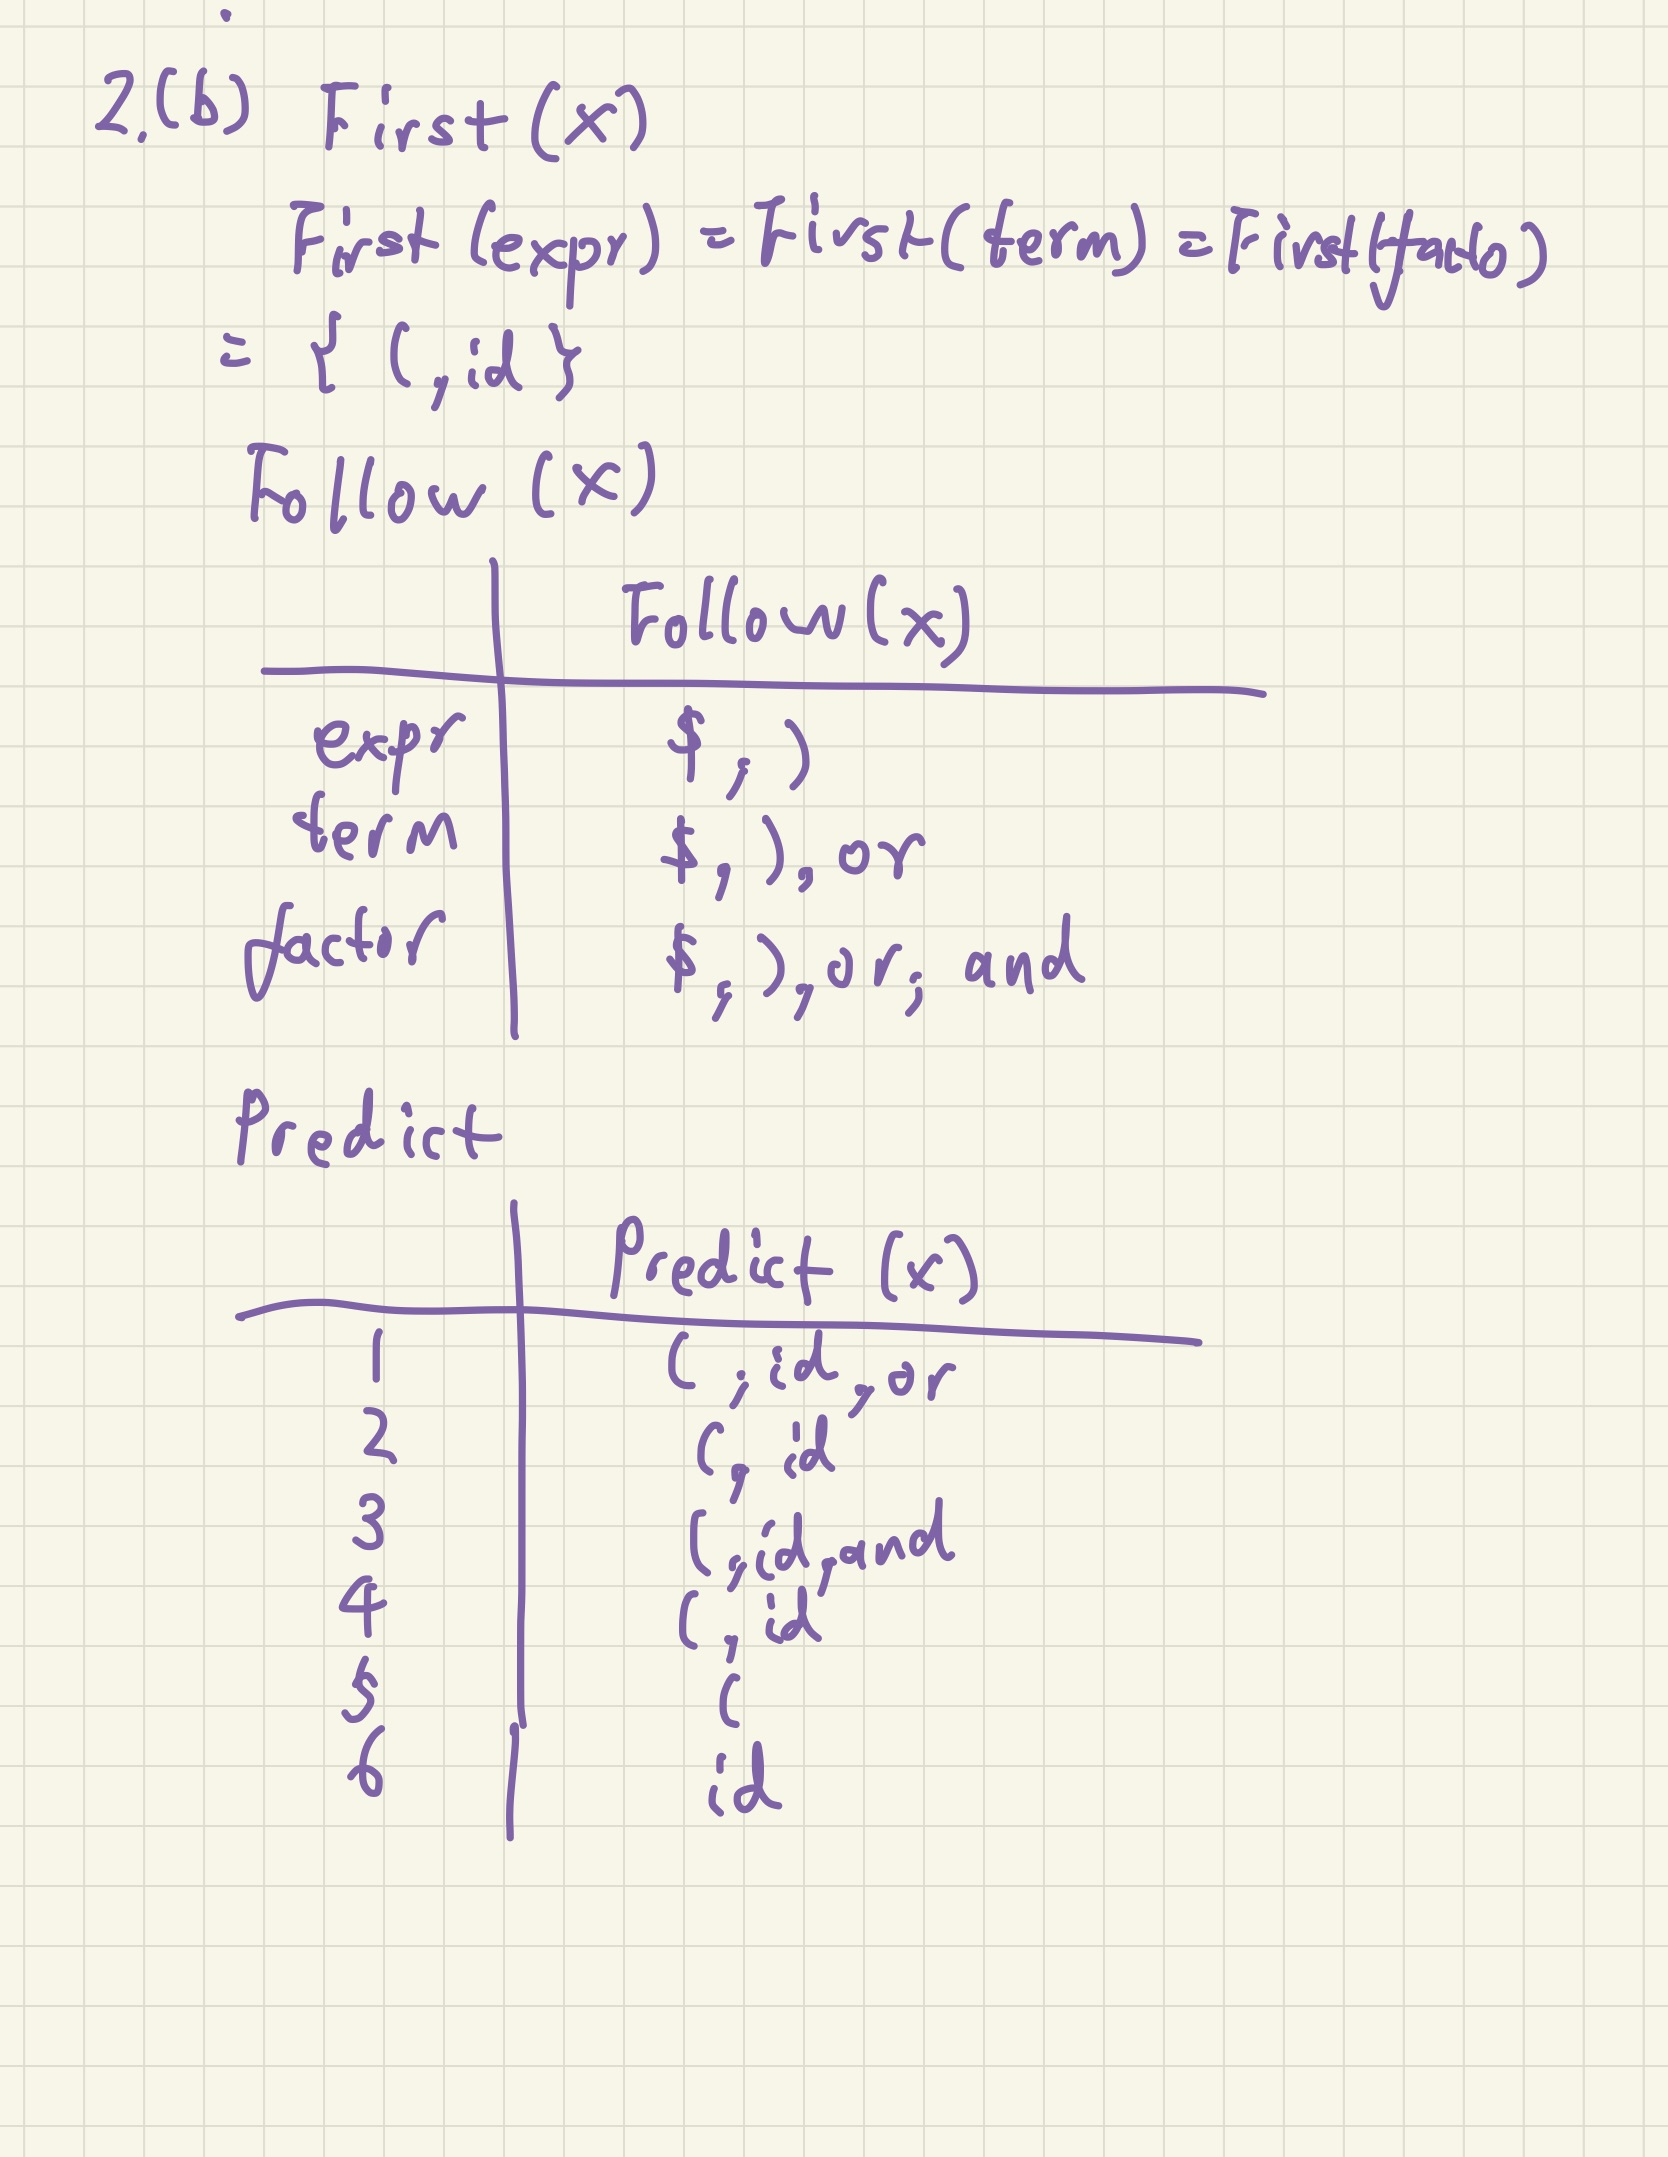 2.(b) First (x)
First (expr) = First (term) = First (facto)
= { (, id }
Follow (x)
Follow (x)
expr $, )
term $, ), or
factor $, ), or, and
Predict
Predict (x)
1 (, id, or
2 (, id
3 (, id, and
4 (, id
5 (
6 id